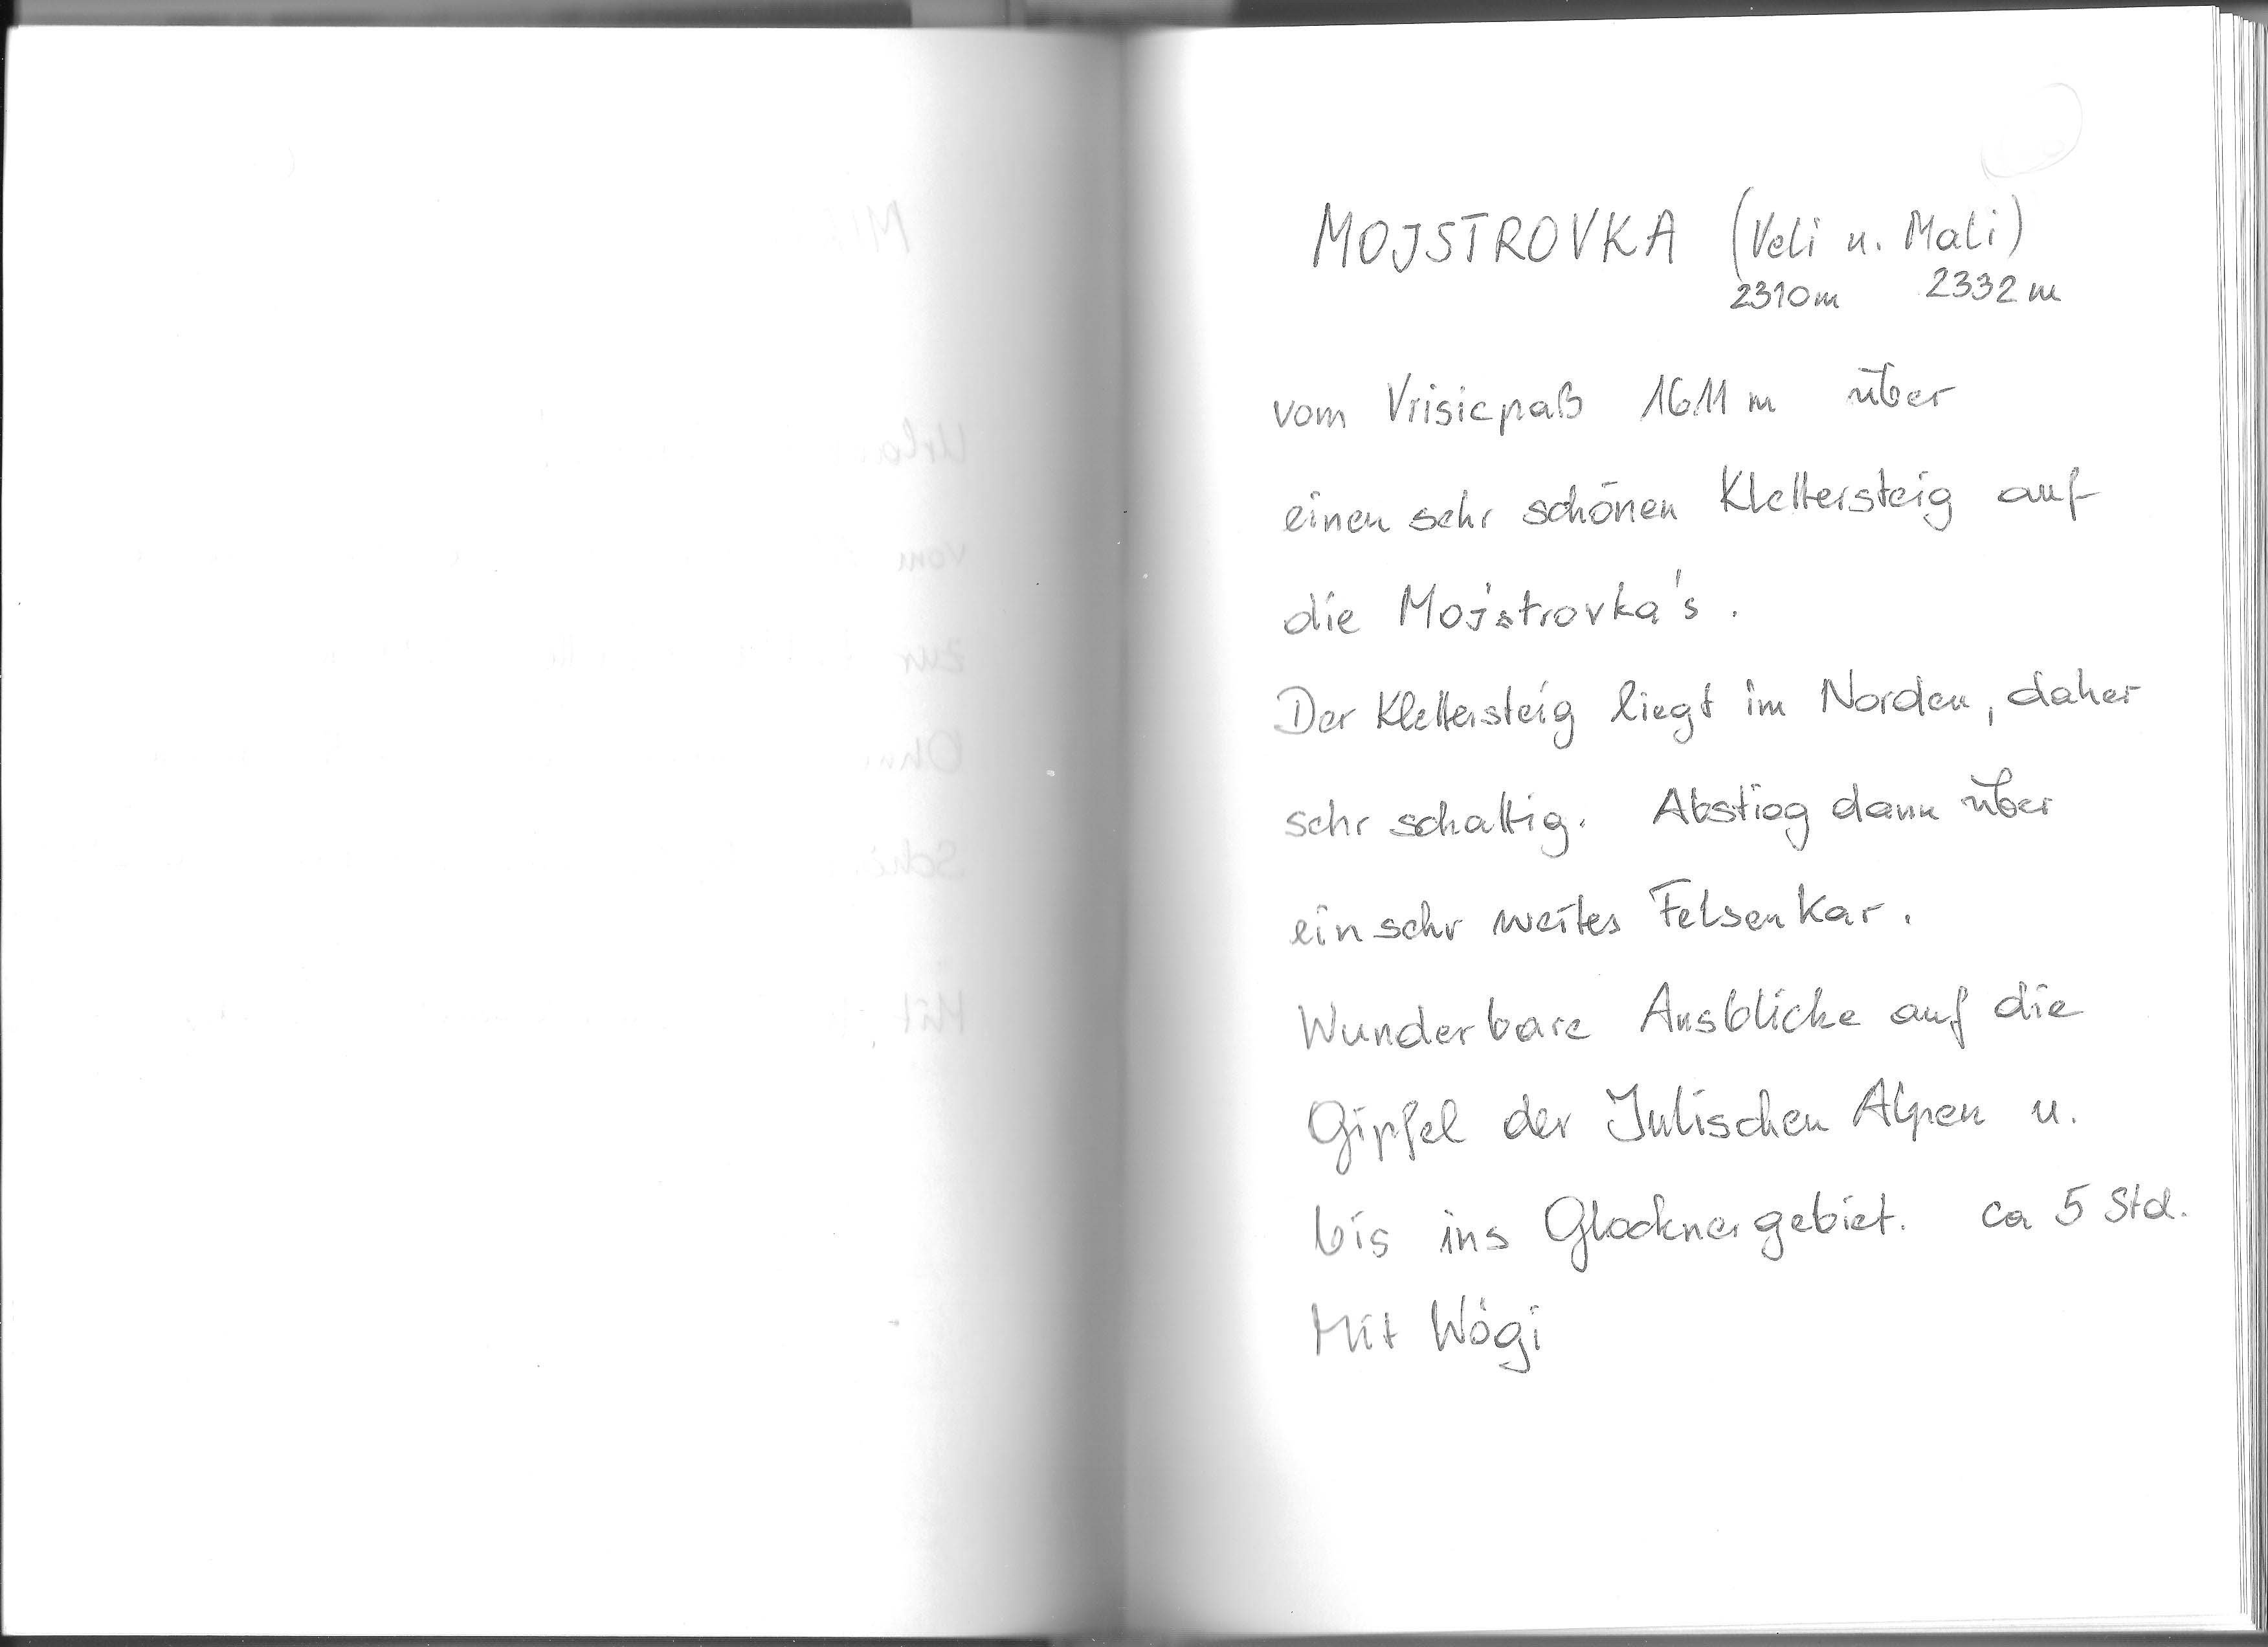 MOJSTROVKA (Veli u. Mali)
2310m 2332m
vom Vrisicpaß 1611 m über
einen sehr schönen Klettersteig auf
die Mojstrovka's.
Der Klettersteig liegt im Norden, daher
sehr schattig. Abstieg dann über
ein sehr weites Felsenkar.
Wunderbare Ausblicke auf die
Gipfel der Julischen Alpen u.
bis ins Glocknergebiet. ca 5 Std.
Mit Wögi